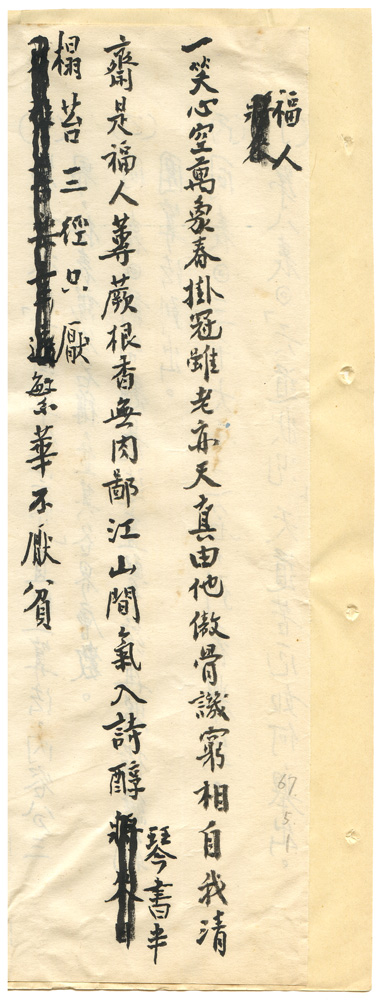 福人
一笑心空萬象春掛冠雖老亦天真由他傲骨譏窮相自我清
齋是福人蓴蕨根香無肉鄙江山閒氣入詩醇琴書半
榻苔三徑只厭繁華不厭貧
67.5.1